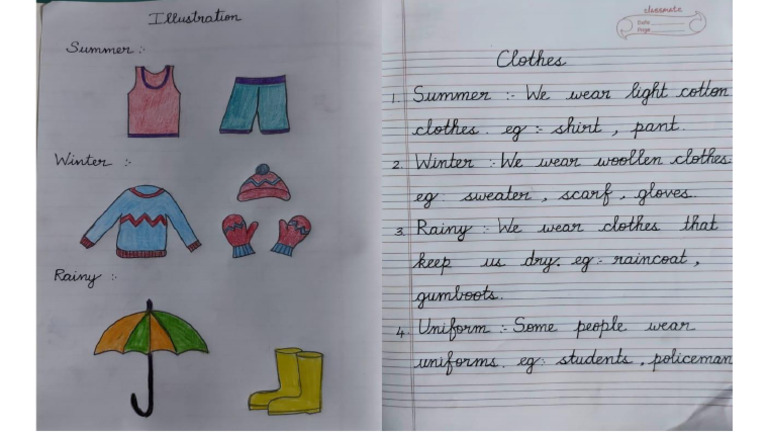 Illustration
Summer :-
Winter :-
Rainy :-
classmate
Date
Page
Clothes
1. Summer :- We wear light cotton
clothes. eg :- shirt, pant.
2. Winter :- We wear woollen clothes
eg: sweater, scarf, gloves.
3. Rainy :- We wear clothes that
keep us dry. eg:- raincoat,
gumboots.
4. Uniform :- Some people wear
uniforms. eg: students, policeman